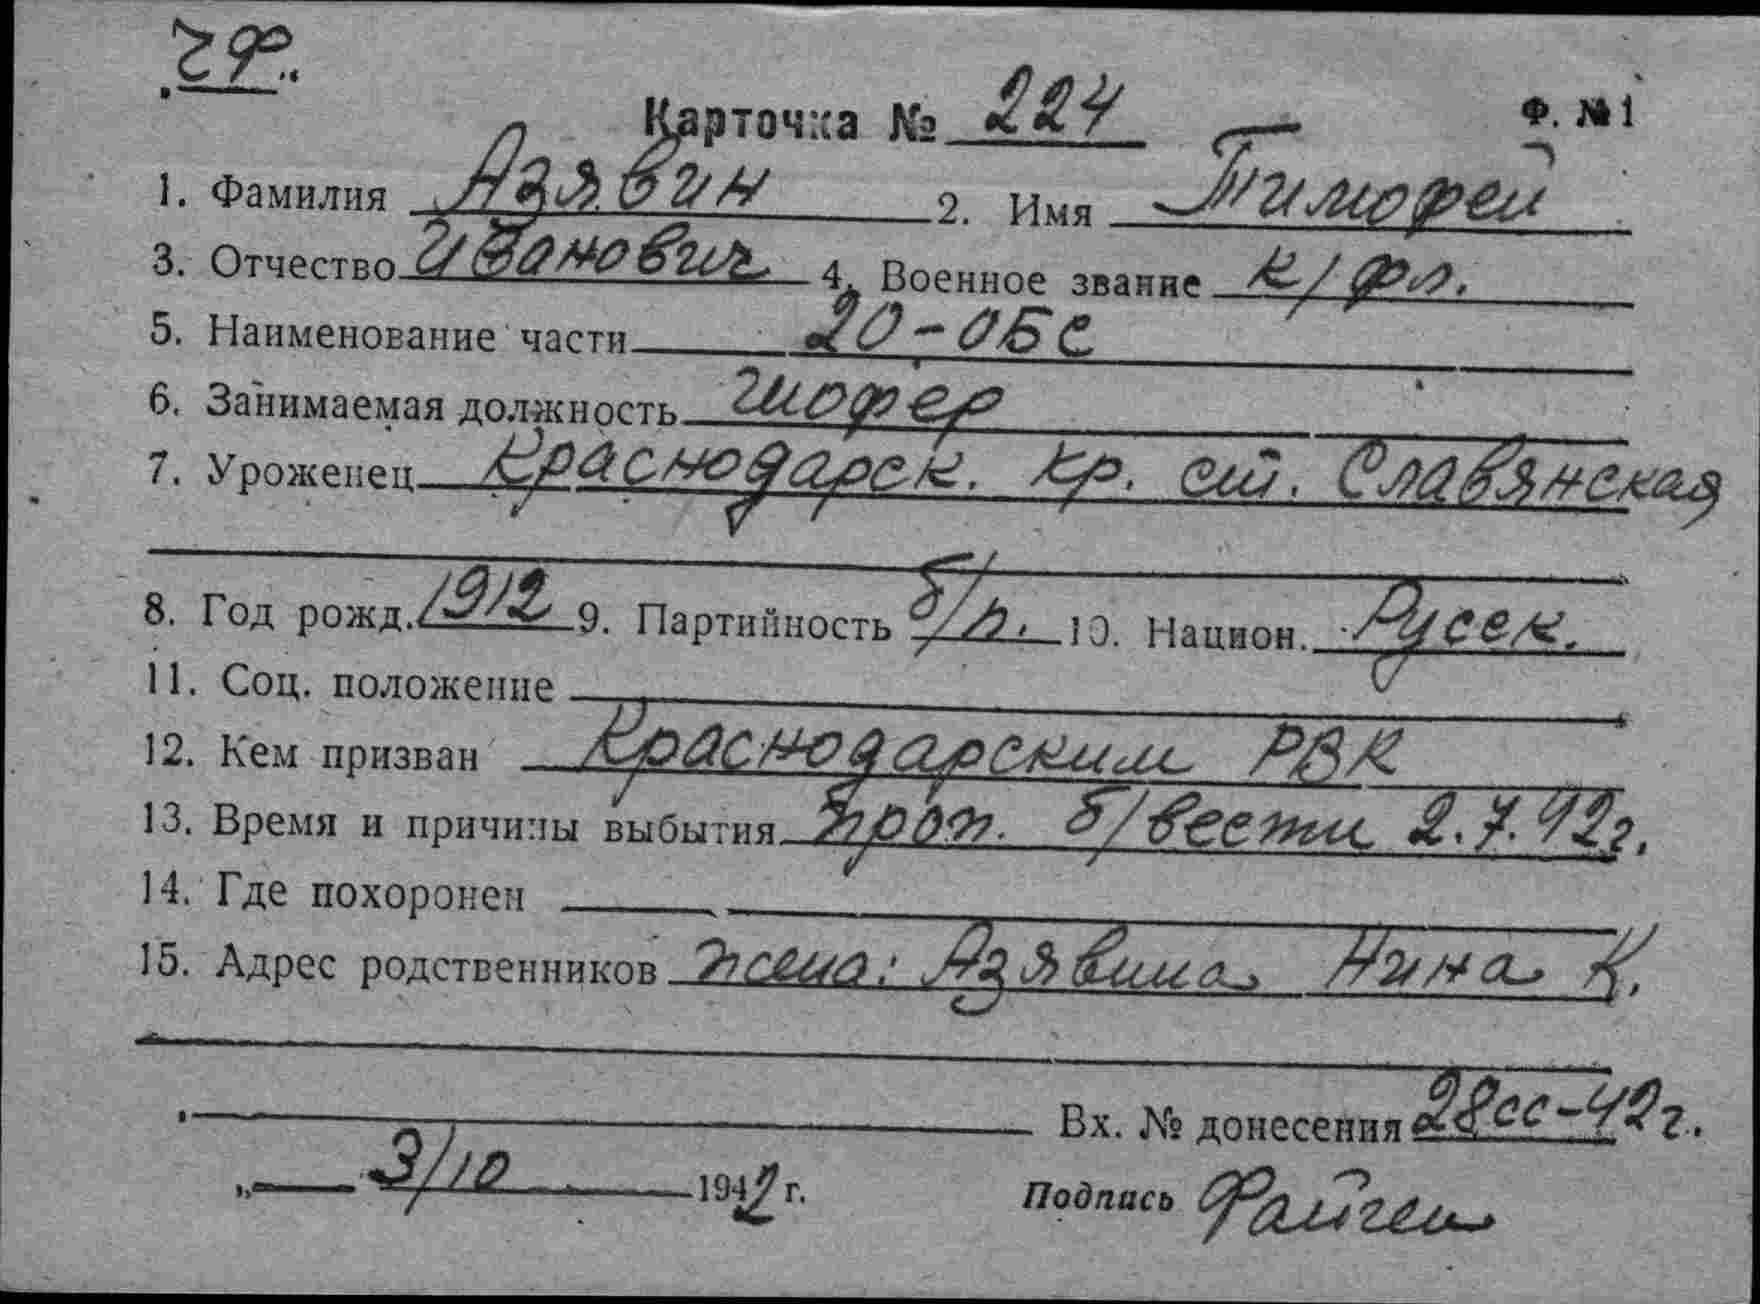 Карточка № 224 Ф. №1
1. Фамилия Азявин 2. Имя Тимофей
3. Отчество Иванович 4. Военное звание к/фл.
5. Наименование части 20-ОБС
6. Занимаемая должность шофер
7. Уроженец Краснодарск. кр. ст. Славянская
8. Год рожд. 1912 9. Партийность б/п. 10. Национ. Русск.
11. Соц. положение
12. Кем призван Краснодарским РВК
13. Время и причины выбытия проп. б/вести 2.7.42г.
14. Где похоронен
15. Адрес родственников жена: Азявина Нина К.
Вх. № донесения 28сс-42г.
„ 3/10 1942 г. Подпись